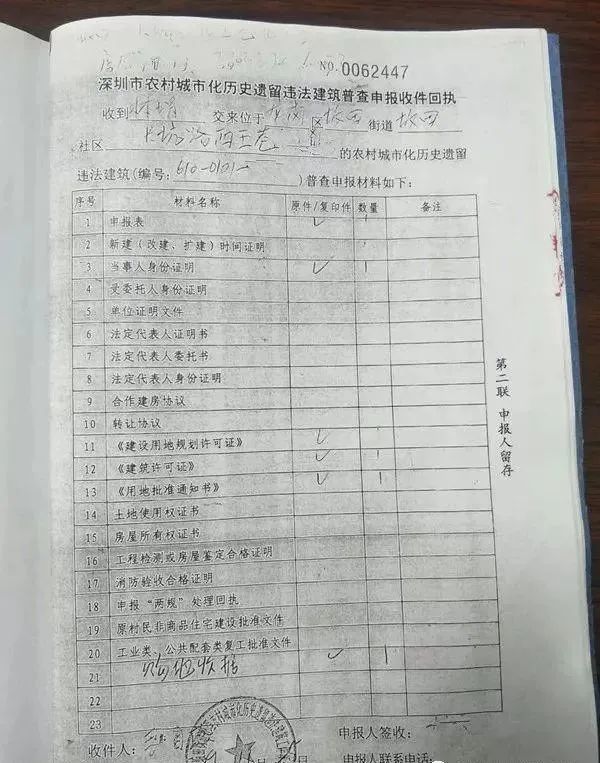 NO.0062447
深圳市农村城市化历史遗留违法建筑普查申报收件回执
收到 交来位于 区 坂田 街道 坂田
社区 的农村城市化历史遗留
违法建筑(编号: 610-0101- )普查申报材料如下:
序号 材料名称 原件/复印件 数量 备注
1 申报表 ✓ 1
2 新建(改建、扩建)时间证明
3 当事人身份证明 ✓ 1
4 受委托人身份证明
5 单位证明文件
6 法定代表人证明书
7 法定代表人委托书
8 法定代表人身份证明
9 合作建房协议
10 转让协议
11 《建设用地规划许可证》 ✓
12 《建筑许可证》 ✓ 1
13 《用地批准通知书》 ✓ 1
14 土地使用权证书
15 房屋所有权证书
16 工程检测或房屋鉴定合格证明
17 消防验收合格证明
18 申报“两规”处理回执
19 原村民非商品住宅建设批准文件
20 工业类、公共配套类复工批准文件 ✓ 1
21 收据
22
23
收件人: 申报人签收:
申报人联系电话:
第二联 申报人留存